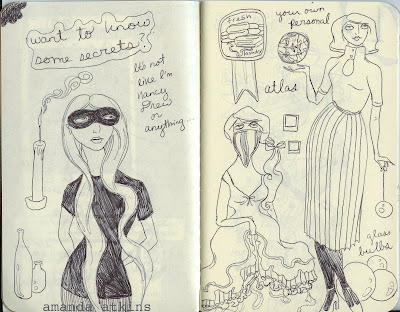 want to know
some secrets?
It's not
like I'm
Nancy
Drew
or
anything...
amanda atkins
Fresh
your own
personal
atlas
glass
bulbs